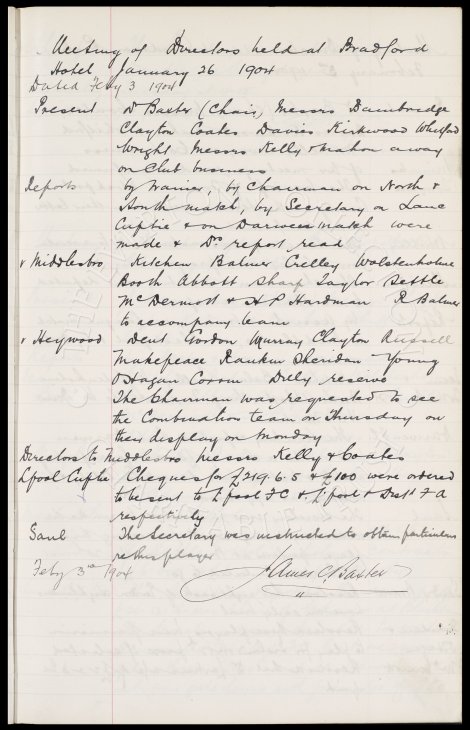 Meeting of Directors held at Bradford
Hotel January 26 1904
Dated Feby 3 1904
Present Dr Baxter (Chair) Messrs Bainbridge
Clayton Coates Davies Kirkwood Whitford
Wright Messrs Kelly & Mahon away
on Club business
Reports by Trainer, by Chairman on North &
South match, by Secretary on Lanc
Cuptie & on Darwen match were
made & Drs report read
v Middlesbro Kitchen Balmer Crelley Wolstenholme
Booth Abbott Sharp Taylor Settle
McDermott & H P Hardman R Balmer
to accompany team
v Heywood Dent Gordon Murray Clayton Russell
Makepeace Rankin Sheridan Young
O'Hagan Corrin Dilly reserve
The Chairman was requested to see
the Combination team on Thursday on
their display on Monday
Directors to Middlesbro Messrs Kelly & Coates
L'pool Cuptie Cheques for £219.6.5 & £100 were ordered
to be sent to L'pool FC & L'pool & Dist F A
respectively
Saul The Secretary was instructed to obtain particulars
re this player
Feby 3rd 1904
James C. Baxter